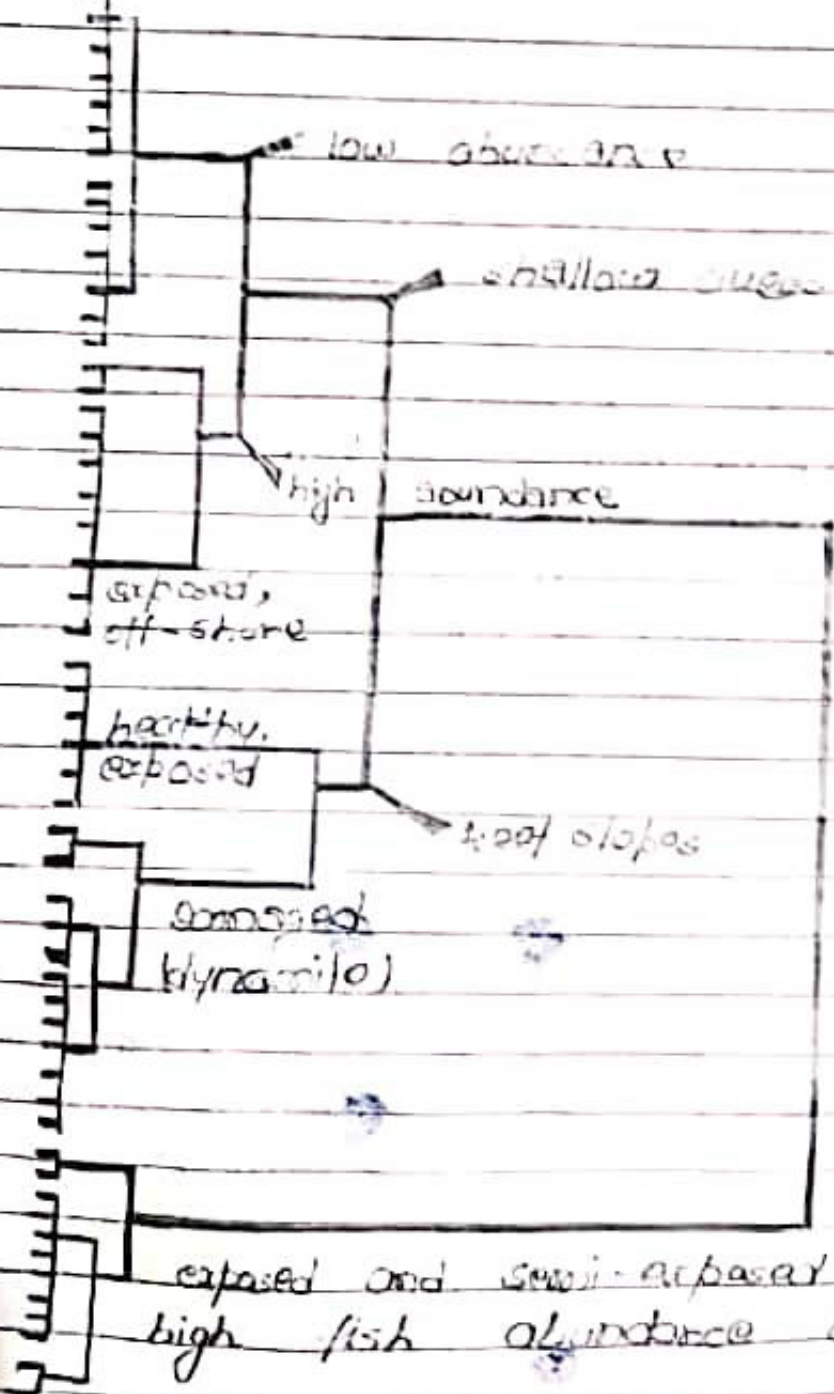 low abundance
shallow
high abundance
exposed,
off-shore
healthy,
exposed
reef slopes
damaged
exposed and semi-exposed
high fish abundance